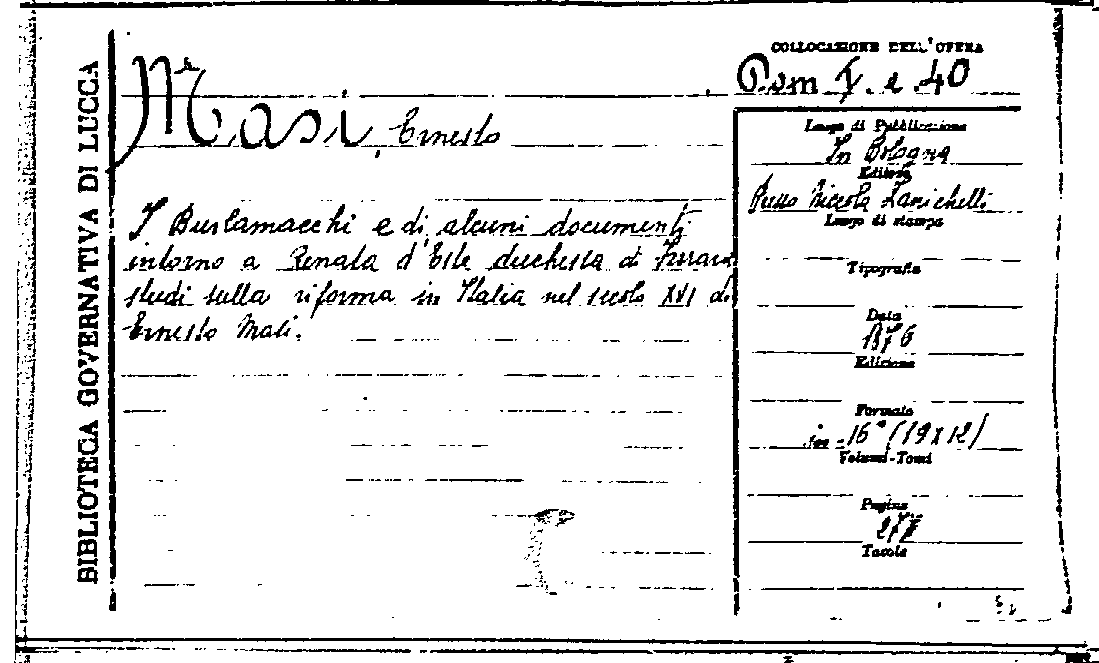 BIBLIOTECA GOVERNATIVA DI LUCCA
Masi, Ernesto
I Burlamacchi e di alcuni documenti
intorno a Renata d'Este duchessa di Ferrara
studi sulla riforma in Italia nel secolo XVI di
Ernesto Masi.
COLLOCAZIONE DELL'OPERA
Dom V. e 40
Luogo di Pubblicazione
In Bologna
Editore
Presso Niccola Zanichelli
Luogo di stampa
Tipografia
Data
1876
Edizione
Formato
in-16° (19x12)
Volumi-Tomi
Pagine
Tavole